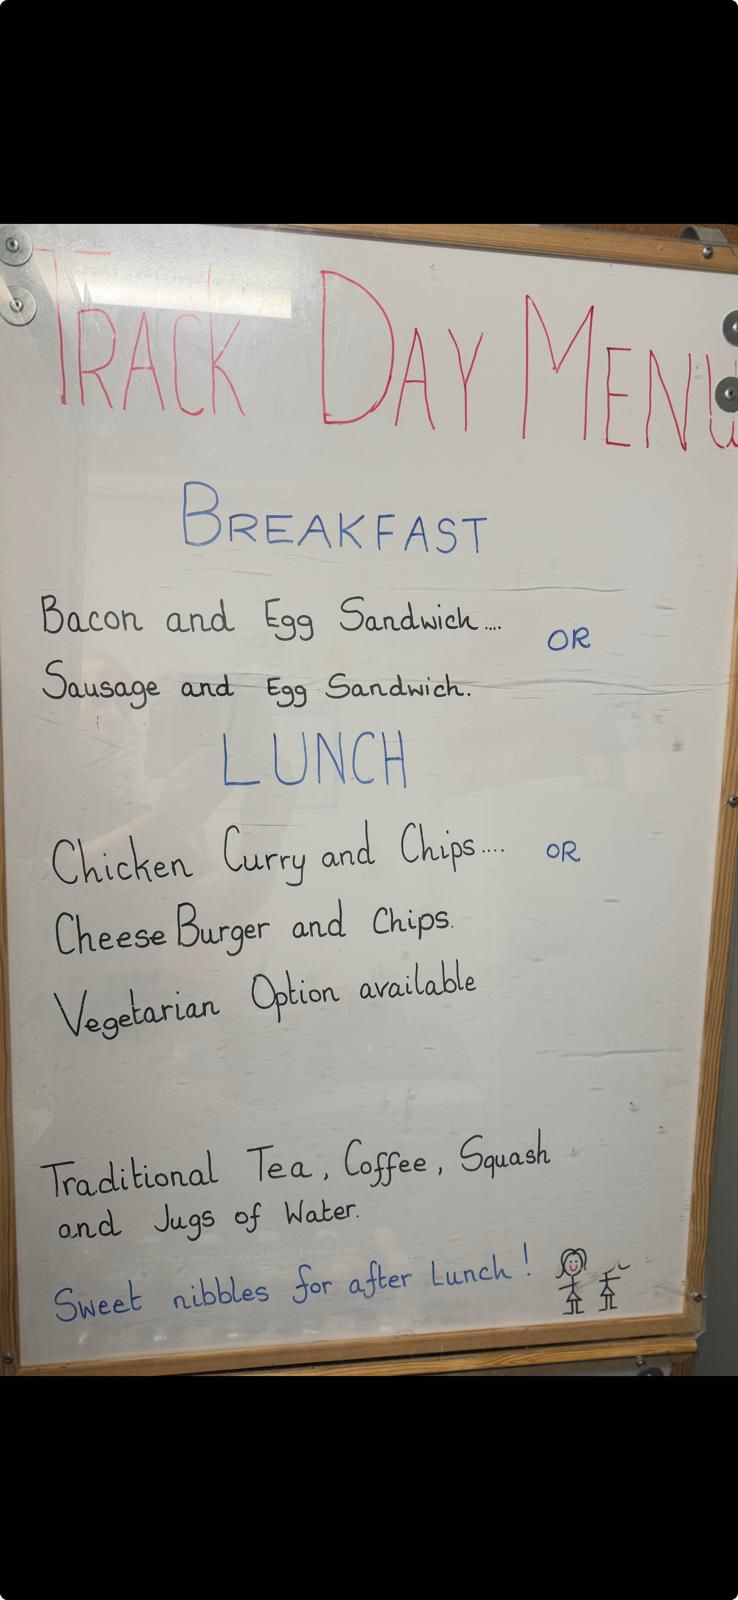 TRACK DAY MENU
BREAKFAST
Bacon and Egg Sandwich.... OR
Sausage and Egg Sandwich.
LUNCH
Chicken Curry and Chips.... OR
Cheese Burger and Chips.
Vegetarian Option available
Traditional Tea, Coffee, Squash
and Jugs of Water.
Sweet nibbles for after Lunch!